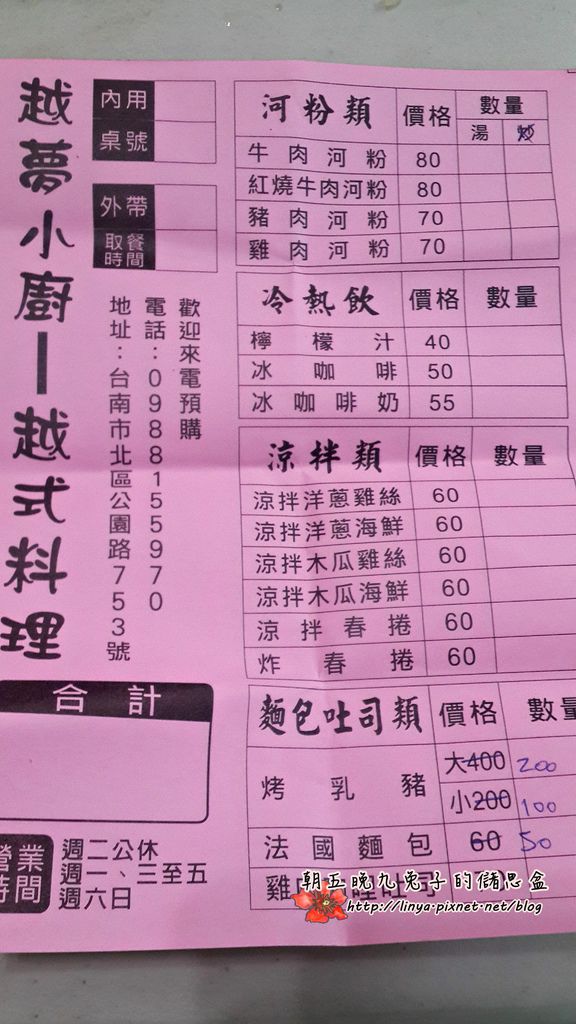 越夢小廚—越式料理
內用
桌號
外帶
取餐時間
歡迎來電預購
電話:0988155970
地址:台南市北區公園路753號
合計
營業時間
週二公休
週一、三至五
週六日
河粉類 價格 數量
湯 炒
牛肉河粉 80
紅燒牛肉河粉 80
豬肉河粉 70
雞肉河粉 70
冷熱飲 價格 數量
檸檬汁 40
冰咖啡 50
冰咖啡奶 55
涼拌類 價格 數量
涼拌洋蔥雞絲 60
涼拌洋蔥海鮮 60
涼拌木瓜雞絲 60
涼拌木瓜海鮮 60
涼拌春捲 60
炸春捲 60
麵包吐司類 價格 數量
烤乳豬 大400 200
小200 100
法國麵包 60 50
雞 吐司
朝五晚九兔子的儲思盒
http://linya.pixnet.net/blog